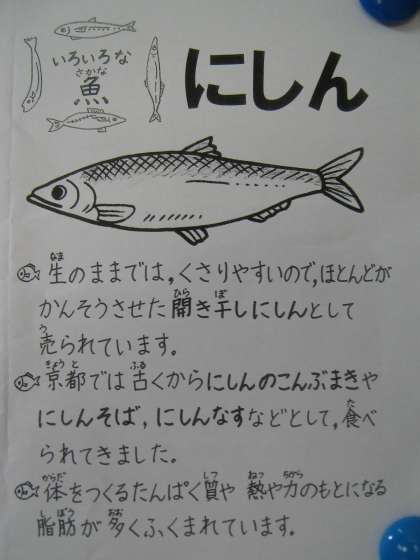 いろいろな
さかな
魚
にしん
なま
生のままでは，くさりやすいので，ほとんどが
ひら ぼ
かんそうさせた 開き干しにしんとして
う
売られています。
きょう と ふる
京都では 古くからにしんのこんぶまきや
にしんそば，にしんなすなどとして，食べ
た
られてきました。
からだ しつ ねつ ちから
体をつくるたんぱく質や 熱や力のもとになる
し ぼう おお
脂肪が 多くふくまれています。